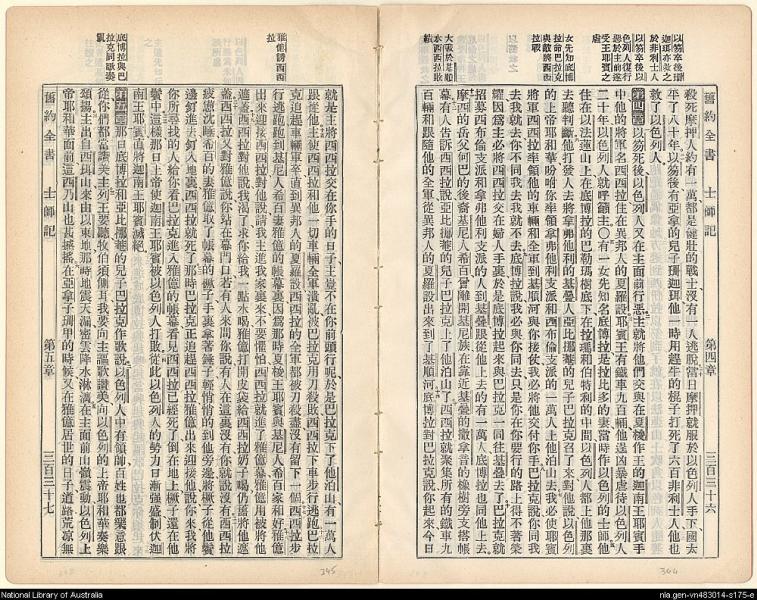 舊約全書 士師記 第四章 三百三十六
殺死摩押人約有一萬都是健壯的戰士沒有一人逃脫當日摩押就服於以色列人手下國太
平了八十年以笏後有亞拿的兒子珊迦珥他一時用趕牛的棍子打死了六百非利士人他也
救了以色列人
第四章以笏死後以色列人又在主面前行惡主就將他們交與在夏瑣作王的迦南王耶賓手
中他的將軍名西西拉住在異邦人的夏羅設耶賓王有鐵車九百輛他逞凶暴虐待以色列人
二十年以色列人就呼籲主〇有一女先知名底博拉是拉比多的妻當時作以色列的士師他
住在以法蓮山上在底博拉的巴勒瑪樹底下在拉瑪和伯特利的中間以色列人都上他那裏
去聽判斷他打發人去將拿弗他利的基疊人亞比挪菴的兒子巴拉克召了來對他說以色列
的上帝耶和華吩咐你率領拿弗他利支派和西布倫支派的一萬人上他泊山去我必使耶賓
將軍西西拉率領他的車輛和全軍到基順河與你接仗我必將他交付你手巴拉克說你同我
去我就去你不同我去我就不去底博拉說我必與你同去只是你在你要行的路上得不著榮
耀因爲主必將西西拉交在婦人手裏於是底博拉起來與巴拉克一同往基疊去了巴拉克就
招募西布倫支派和拿弗他利支派的人到基疊跟從他上去的有一萬人底博拉也同他上去
摩西的岳父何巴的後裔基尼人希百曾離開基尼族在靠近基疊的撒拿音的橡樹旁支搭帳
幕有人告訴西西拉說亞比挪菴的兒子巴拉克上了他泊山了西西拉就聚集所有的鐵車九
百輛和跟隨他的全軍從異邦人的夏羅設出來到了基順河底博拉對巴拉克說你起來今日
舊約全書 士師記 第五章 三百三十七
就是主將西西拉交在你手的日子主豈不在你前頭行呢於是巴拉克下了他泊山有一萬人
跟從他主使西西拉和他一切車輛全軍潰亂被巴拉克用刀殺敗西西拉下車步行逃跑巴拉
克追趕車輛軍卒直到異邦人的夏羅設西西拉的全軍都被刀殺盡沒有留下一個西西拉步
行逃跑到基尼人希百妻雅億的帳幕裏因爲那時夏瑣王耶賓與基尼人希百家和好雅億
出來迎接西西拉對他說請我主進我家裏來不要懼怕西西拉就進了雅億幕雅億用被將他
遮蓋西西拉對他說我渴了求你給我一點水喝雅億打開皮袋給西西拉奶子喝仍舊將他遮
蓋西西拉又對雅億說你站在幕門口若有人來問你說有人在這裏沒有你就說沒有西西拉
疲憊沈睡希百的妻雅億取了帳幕的橛子手裏拿著錘子輕悄悄的到他旁邊將橛子從他鬢
邊釘進去釘入地裏西西拉就死了那時巴拉克正追趕西西拉雅億出來迎接他說你來我將
你所尋找的人給你看巴拉克進入雅億的帳幕看見西西拉已經死了倒在地上橛子還在他
鬢中這樣那日上帝使迦南王耶賓被以色列人打敗從此以色列人的勢力日漸强盛制伏迦
南王耶賓直將迦南王耶賓滅絕
第五章那日底博拉和亞比挪菴的兒子巴拉克作歌說以色列人中有領師百姓也都樂意跟
從你們都當讚美主列王要聽牧伯須側耳我要向主謳歌讚美向以色列的上帝耶和華奏樂
頌揚主出自西珥山來由以東地那時地震天漏密雲降水淋漓在主面前山嶺震動以色列上
帝耶和華面前這西乃山也甚搖撼在亞拿子珊甲的時候又在雅億居世的日子道路荒涼無
National Library of Australia
nla.gen-vn483014-s175-e